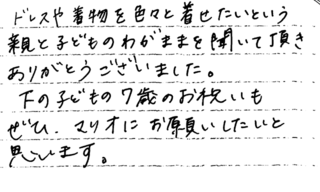 ドレスや着物を色々と着せたいという
親と子どものわがままを聞いて頂き
ありがとうございました。
下の子どもの7歳のお祝いも
ぜひ、マリオにお願いしたいと
思います。